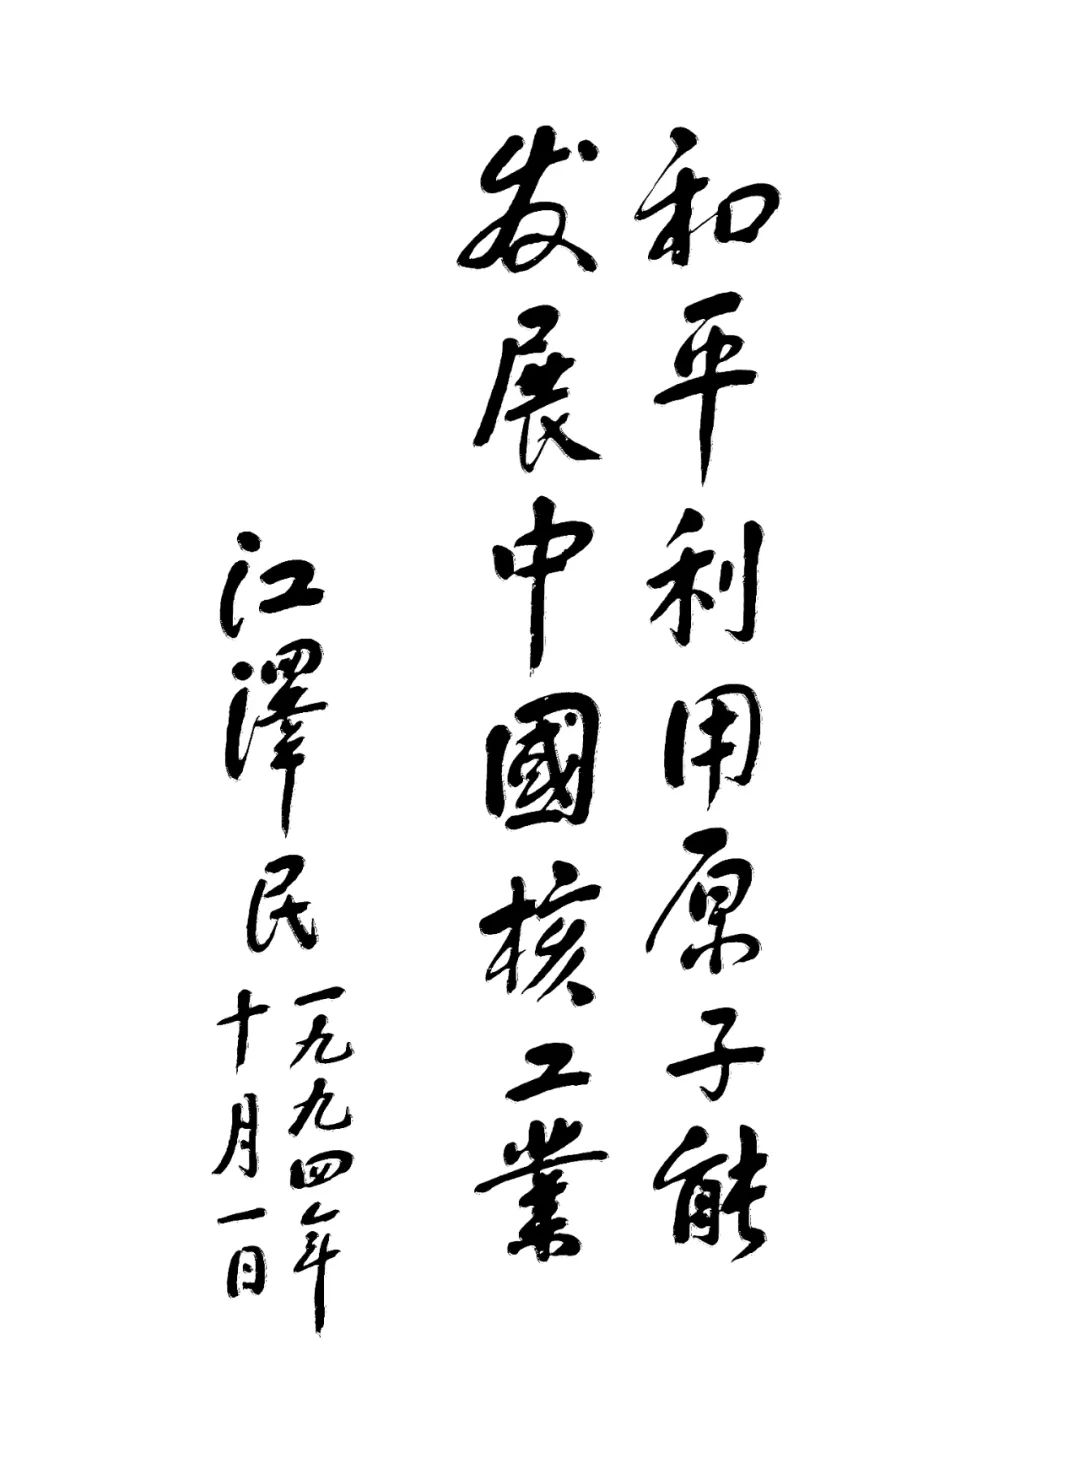 和平利用原子能
发展中國核工業
江澤民
一九九四年
十月一日